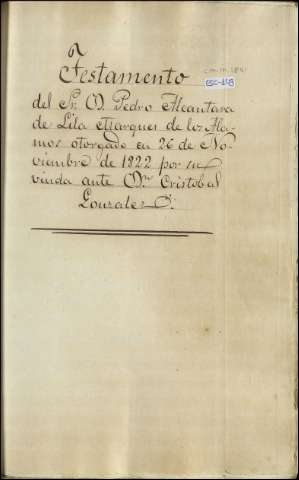 Testamento
del Sr. D. Pedro Alcantara
de Lila Marques de los Ala-
mos otorgado en 26 de No-
viembre de 1822 por su
viuda ante Dn. Cristobal
Gonzalez
ESC-848